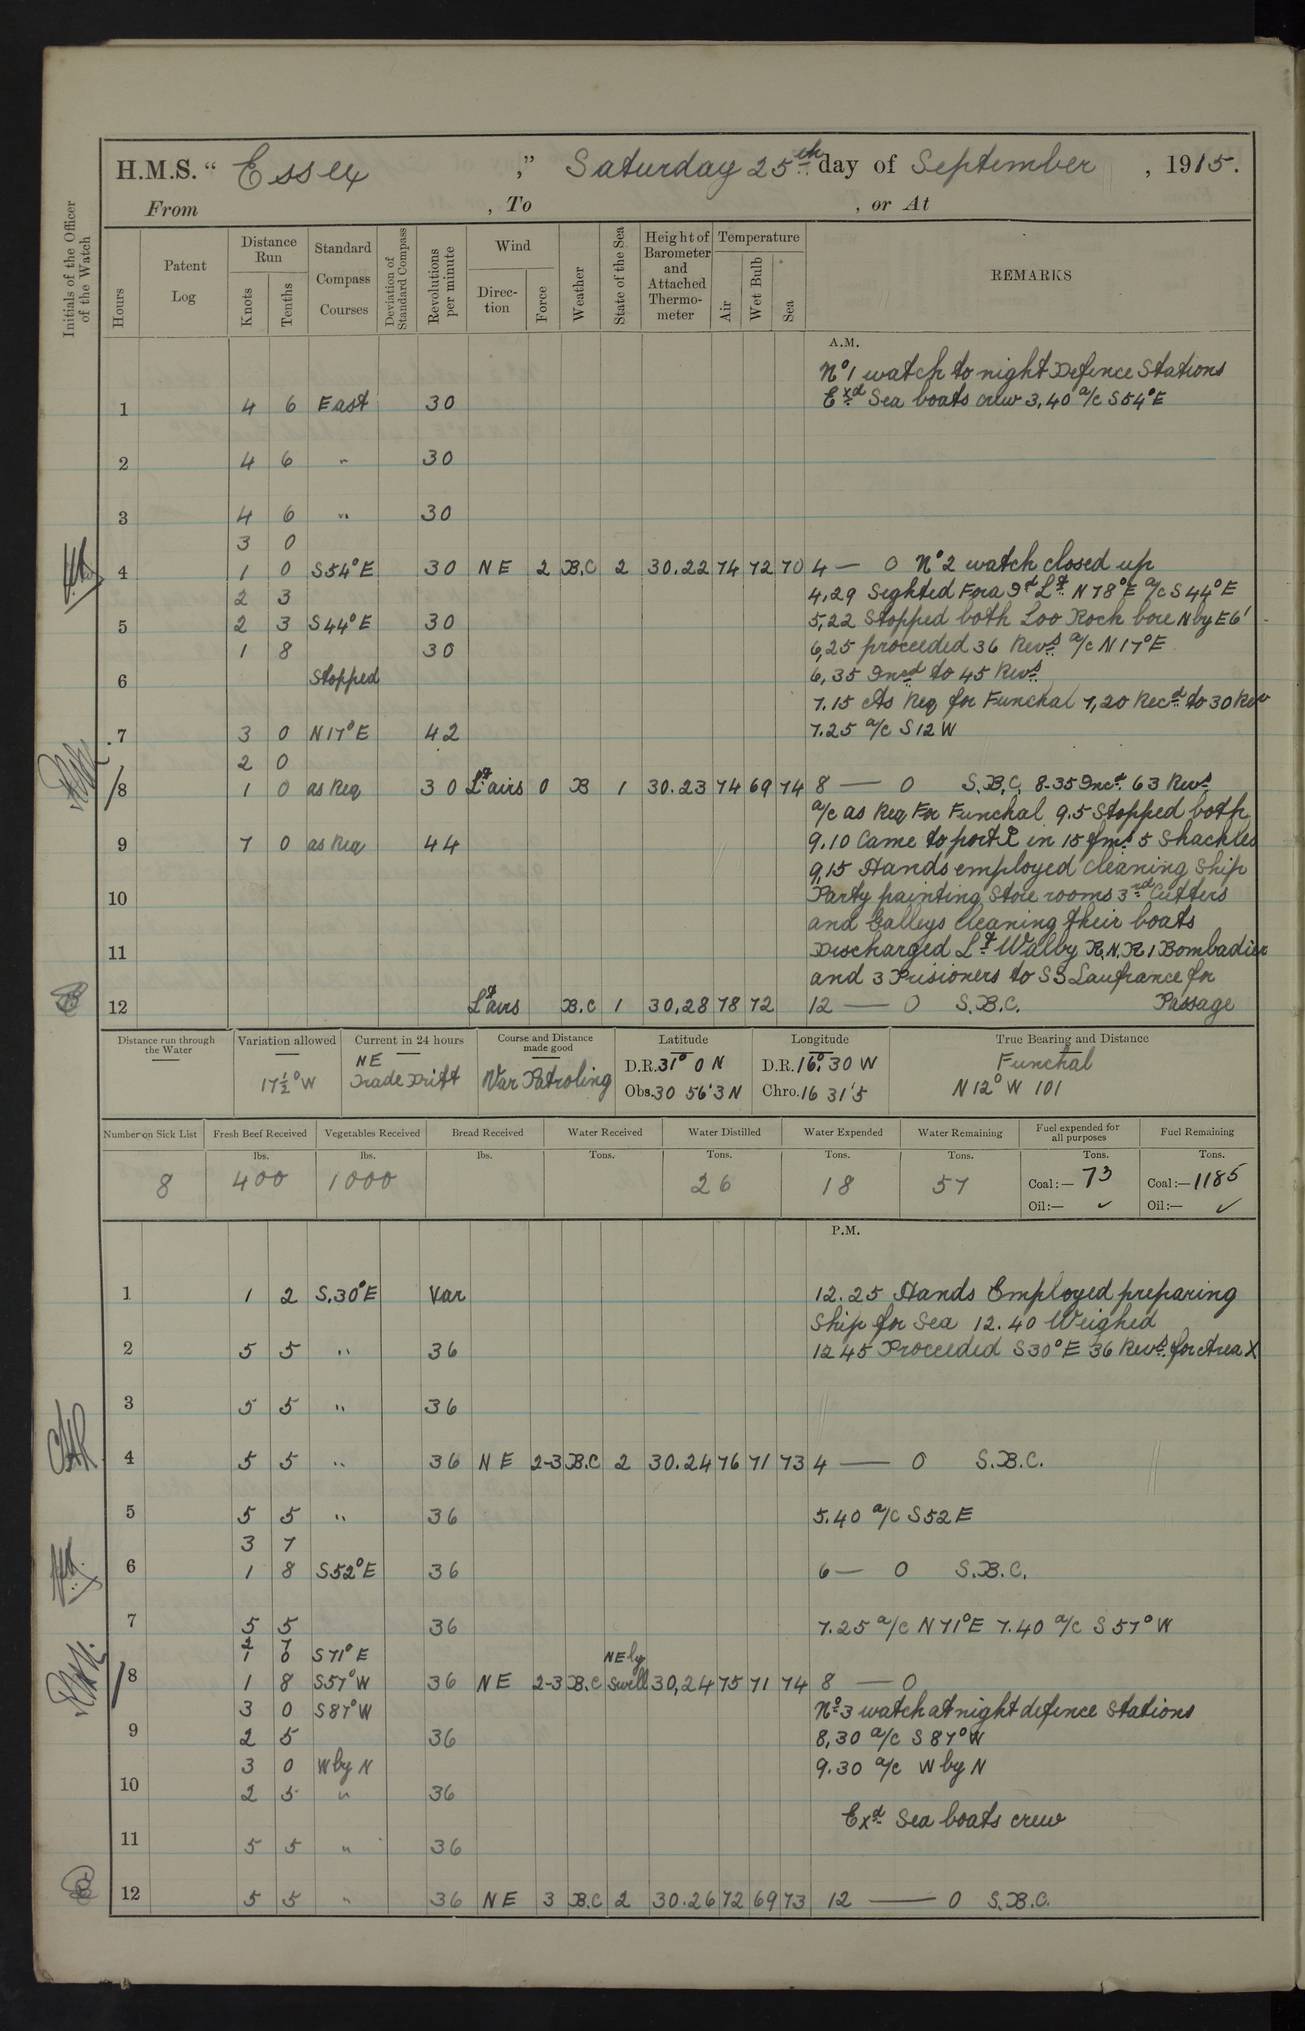 H.M.S. “ Essex ,” Saturday 25th day of September , 1915.
From , To , or At
Initials of the Officer of the Watch
Hours
Patent Log
Distance Run
Knots
Tenths
Standard Compass Courses
Deviation of Standard Compass
Revolutions per minute
Wind
Direction
Force
Weather
State of the Sea
Height of Barometer and Attached Thermometer
Temperature
Air
Wet Bulb
Sea
REMARKS
A.M.
No 1 watch to night Defence Stations
1 4 6 East 30 Exd Sea boats crew 3,40 a/c S54°E
2 4 6 " 30
3 4 6 " 30
3 0
4 1 0 S54°E 30 NE 2 B.C 2 30.22 74 72 70 4 — 0 No 2 watch closed up
2 3 4.29 Sighted Fora Id Lt N78°E a/c S44°E
5 2 3 S44°E 30 5,22 Stopped both Loo Rock bore N by E 6'
1 8 30 6,25 proceeded 36 Revs a/c N17°E
6 Stopped 6,35 Incd to 45 Revs
7.15 As Req for Funchal 7,20 Recd to 30 Rev
7 3 0 N17°E 42 7.25 a/c S12W
2 0
8 1 0 as Req 30 Lt airs 0 B 1 30.23 74 69 74 8 — 0 S.B.C. 8.35 Incd 63 Revs
a/c as Req For Funchal 9.5 Stopped both
9 7 0 as Req 44 9.10 Came to port in 15 fms 5 Shackles
9,15 Hands employed cleaning Ship
10 Party painting Store rooms 3rd Cutters
and Galleys cleaning their boats
11 Discharged Lt Walby R.N.R 1 Bombadier
and 3 Prisioners to SS Laufrance for
12 Lt airs B.C 1 30,28 78 72 12 — 0 S.B.C. Passage
Distance run through the Water
Variation allowed
17½°W
Current in 24 hours
NE
Trade Drift
Course and Distance made good
Var Patroling
Latitude
D.R. 31° 0 N
Obs. 30 56'3 N
Longitude
D.R. 16° 30 W
Chro. 16 31'5
True Bearing and Distance
Funchal
N12°W 101
Number on Sick List Fresh Beef Received Vegetables Received Bread Received Water Received Water Distilled Water Expended Water Remaining Fuel expended for all purposes Fuel Remaining
lbs. lbs. lbs. Tons. Tons. Tons. Tons. Tons. Tons.
8 400 1000 26 18 57 Coal:— 73 Coal:— 1185
Oil:— ✓ Oil:— ✓
P.M.
1 1 2 S.30°E Var 12.25 Hands Employed preparing
Ship for Sea 12.40 Weighed
2 5 5 " 36 12 45 Proceeded S30°E 36 Revs for Area X
3 5 5 " 36
4 5 5 " 36 NE 2-3 B.C 2 30.24 76 71 73 4 — 0 S.B.C.
5 5 5 " 36 5.40 a/c S52E
3 7
6 1 8 S52°E 36 6 — 0 S.B.C.
7 5 5 36 7.25 a/c N71°E 7.40 a/c S57°W
2 7
1 0 S71°E NEly
8 1 8 S57°W 36 NE 2-3 B.C Swell 30,24 75 71 74 8 — 0
3 0 S87°W No 3 watch at night defence Stations
9 2 5 36 8,30 a/c S87°W
3 0 W by N 9.30 a/c W by N
10 2 5 " 36
Exd Sea boats crew
11 5 5 " 36
12 5 5 " 36 NE 3 B.C 2 30.26 72 69 73 12 — 0 S.B.C.